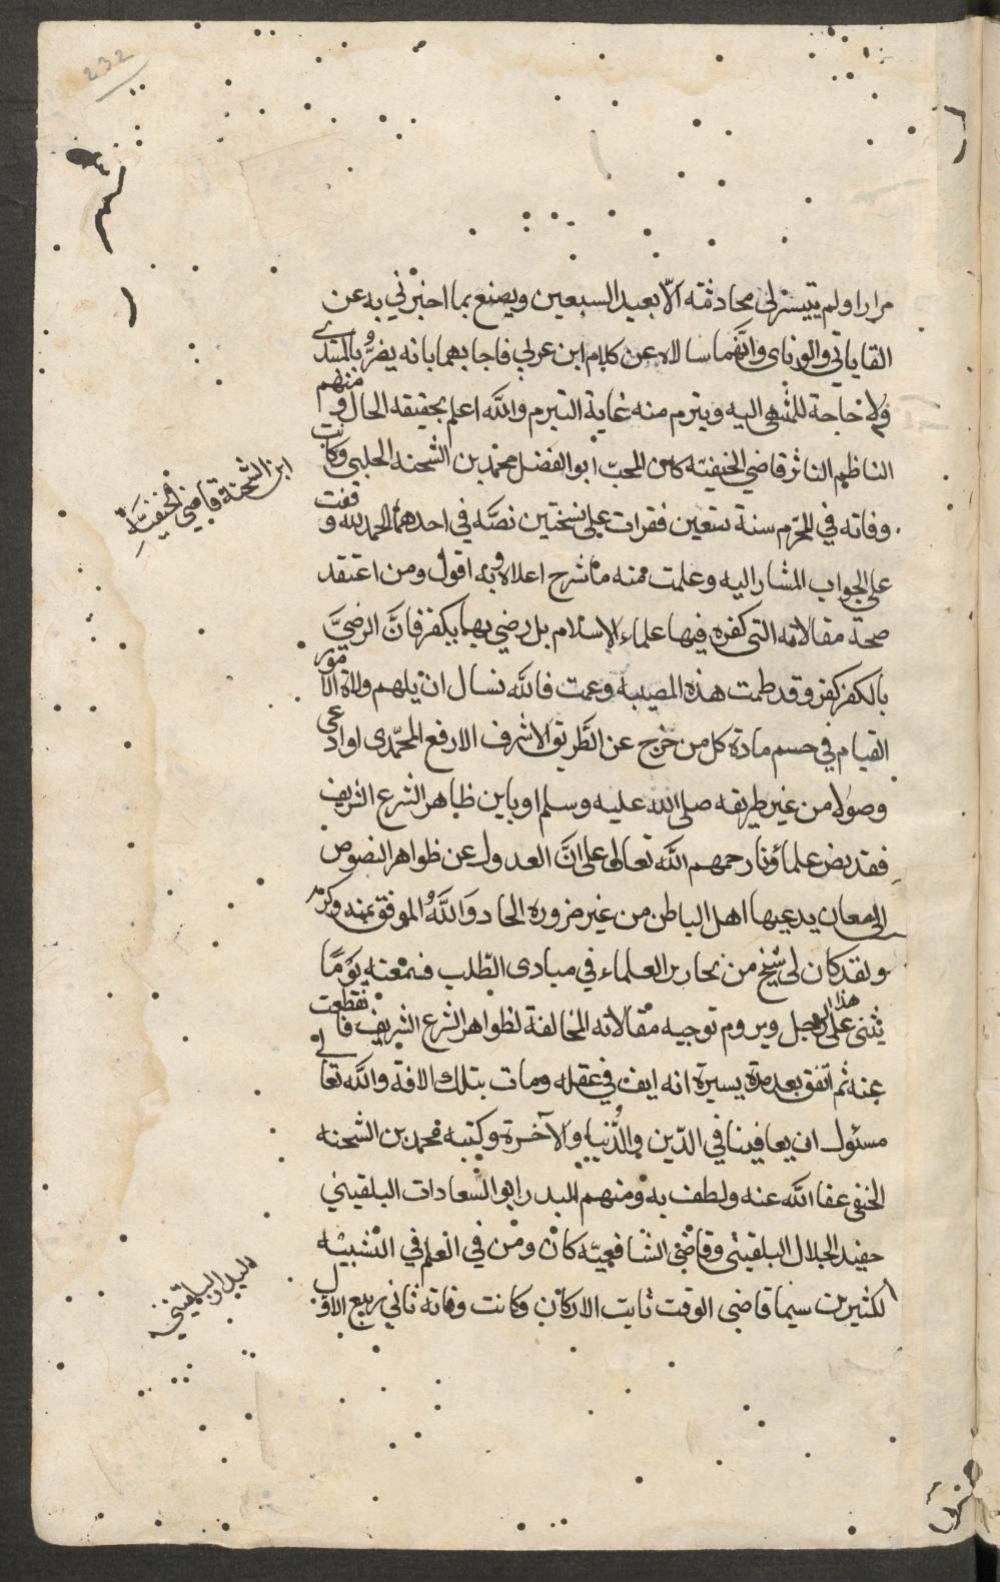 232
مرارا ولم يتيسر لي محادثته الا بعيد السبعين ويصنع بما اخبرني به عن
القاياتي والوناى وانهما سالاه عن كلام ابن عربي فاجابهما بانه يضر بالمبتدى
ولا حاجة للمنتهى اليه ويتبرم منه غاية التبرم والله اعلم بحقيقة الحال ومنهم
الناظم الناثر قاضي الحنفيّة كان المحب ابو الفضل محمد بن الشحنه الحلبي وكانت
ابن الشحنة قاضي الحنفيّة
وفاته في المحرّم سنة تسعين فقرات على نسختين نصّه في احدهما الحمد لله وقفت
على الجواب المشار اليه وعلمت منه ما شرح اعلاه وبه اقول ومن اعتقد
صحة مقالاته التى كفره فيها علماء الاسلام بل رضي بها يكفر فانّ الرضىَّ
بالكفر كفر وقد طمت هذه المصيبة وعمت فالله نسال ان يلهم ولاة الامور
القيام في حسم مادة كل من خرج عن الطريق الاشرف الارفع المحمّدى او ادعى
وصولا من غير طريقه صلى الله عليه وسلم او باين ظاهر الشرع الشريف
فقد نص علماؤنا رحمهم الله تعالى على انّ العدول عن ظواهر النصوص
الى معان يدعيها اهل الباطن من غير ضرورة الحاد وَاللهُ الموفق بمنه وكرمه
ولقد كان لى شيخ من نحارير العلماء في مبادى الطّلب فسمعته يوَمًا
يثنى على هذا الرجل ويروم توجيه مقالاته المخالفة لظواهر الشرع الشريف فانقطعت
عنه ثم اتفق بعد مدة يسيرة انه ايف في عقله ومات بتلك الافة والله تعالى
مسئول ان يعافينا في الدّين والدُّنيا والآخرة وكتبه محمد بن الشحنه
الحنفى عفا الله عنه ولطف به ومنهم البدر ابو السعادات البلقيني
حفيد الجلال البلقينى وقاضى الشافعيّة كان ومن في العلم في التشبيه
لكثيرين سيما قاضى الوقت ثابت الاركان وكانت وفاته ثاني ربيع الاول
البدر البلقيني